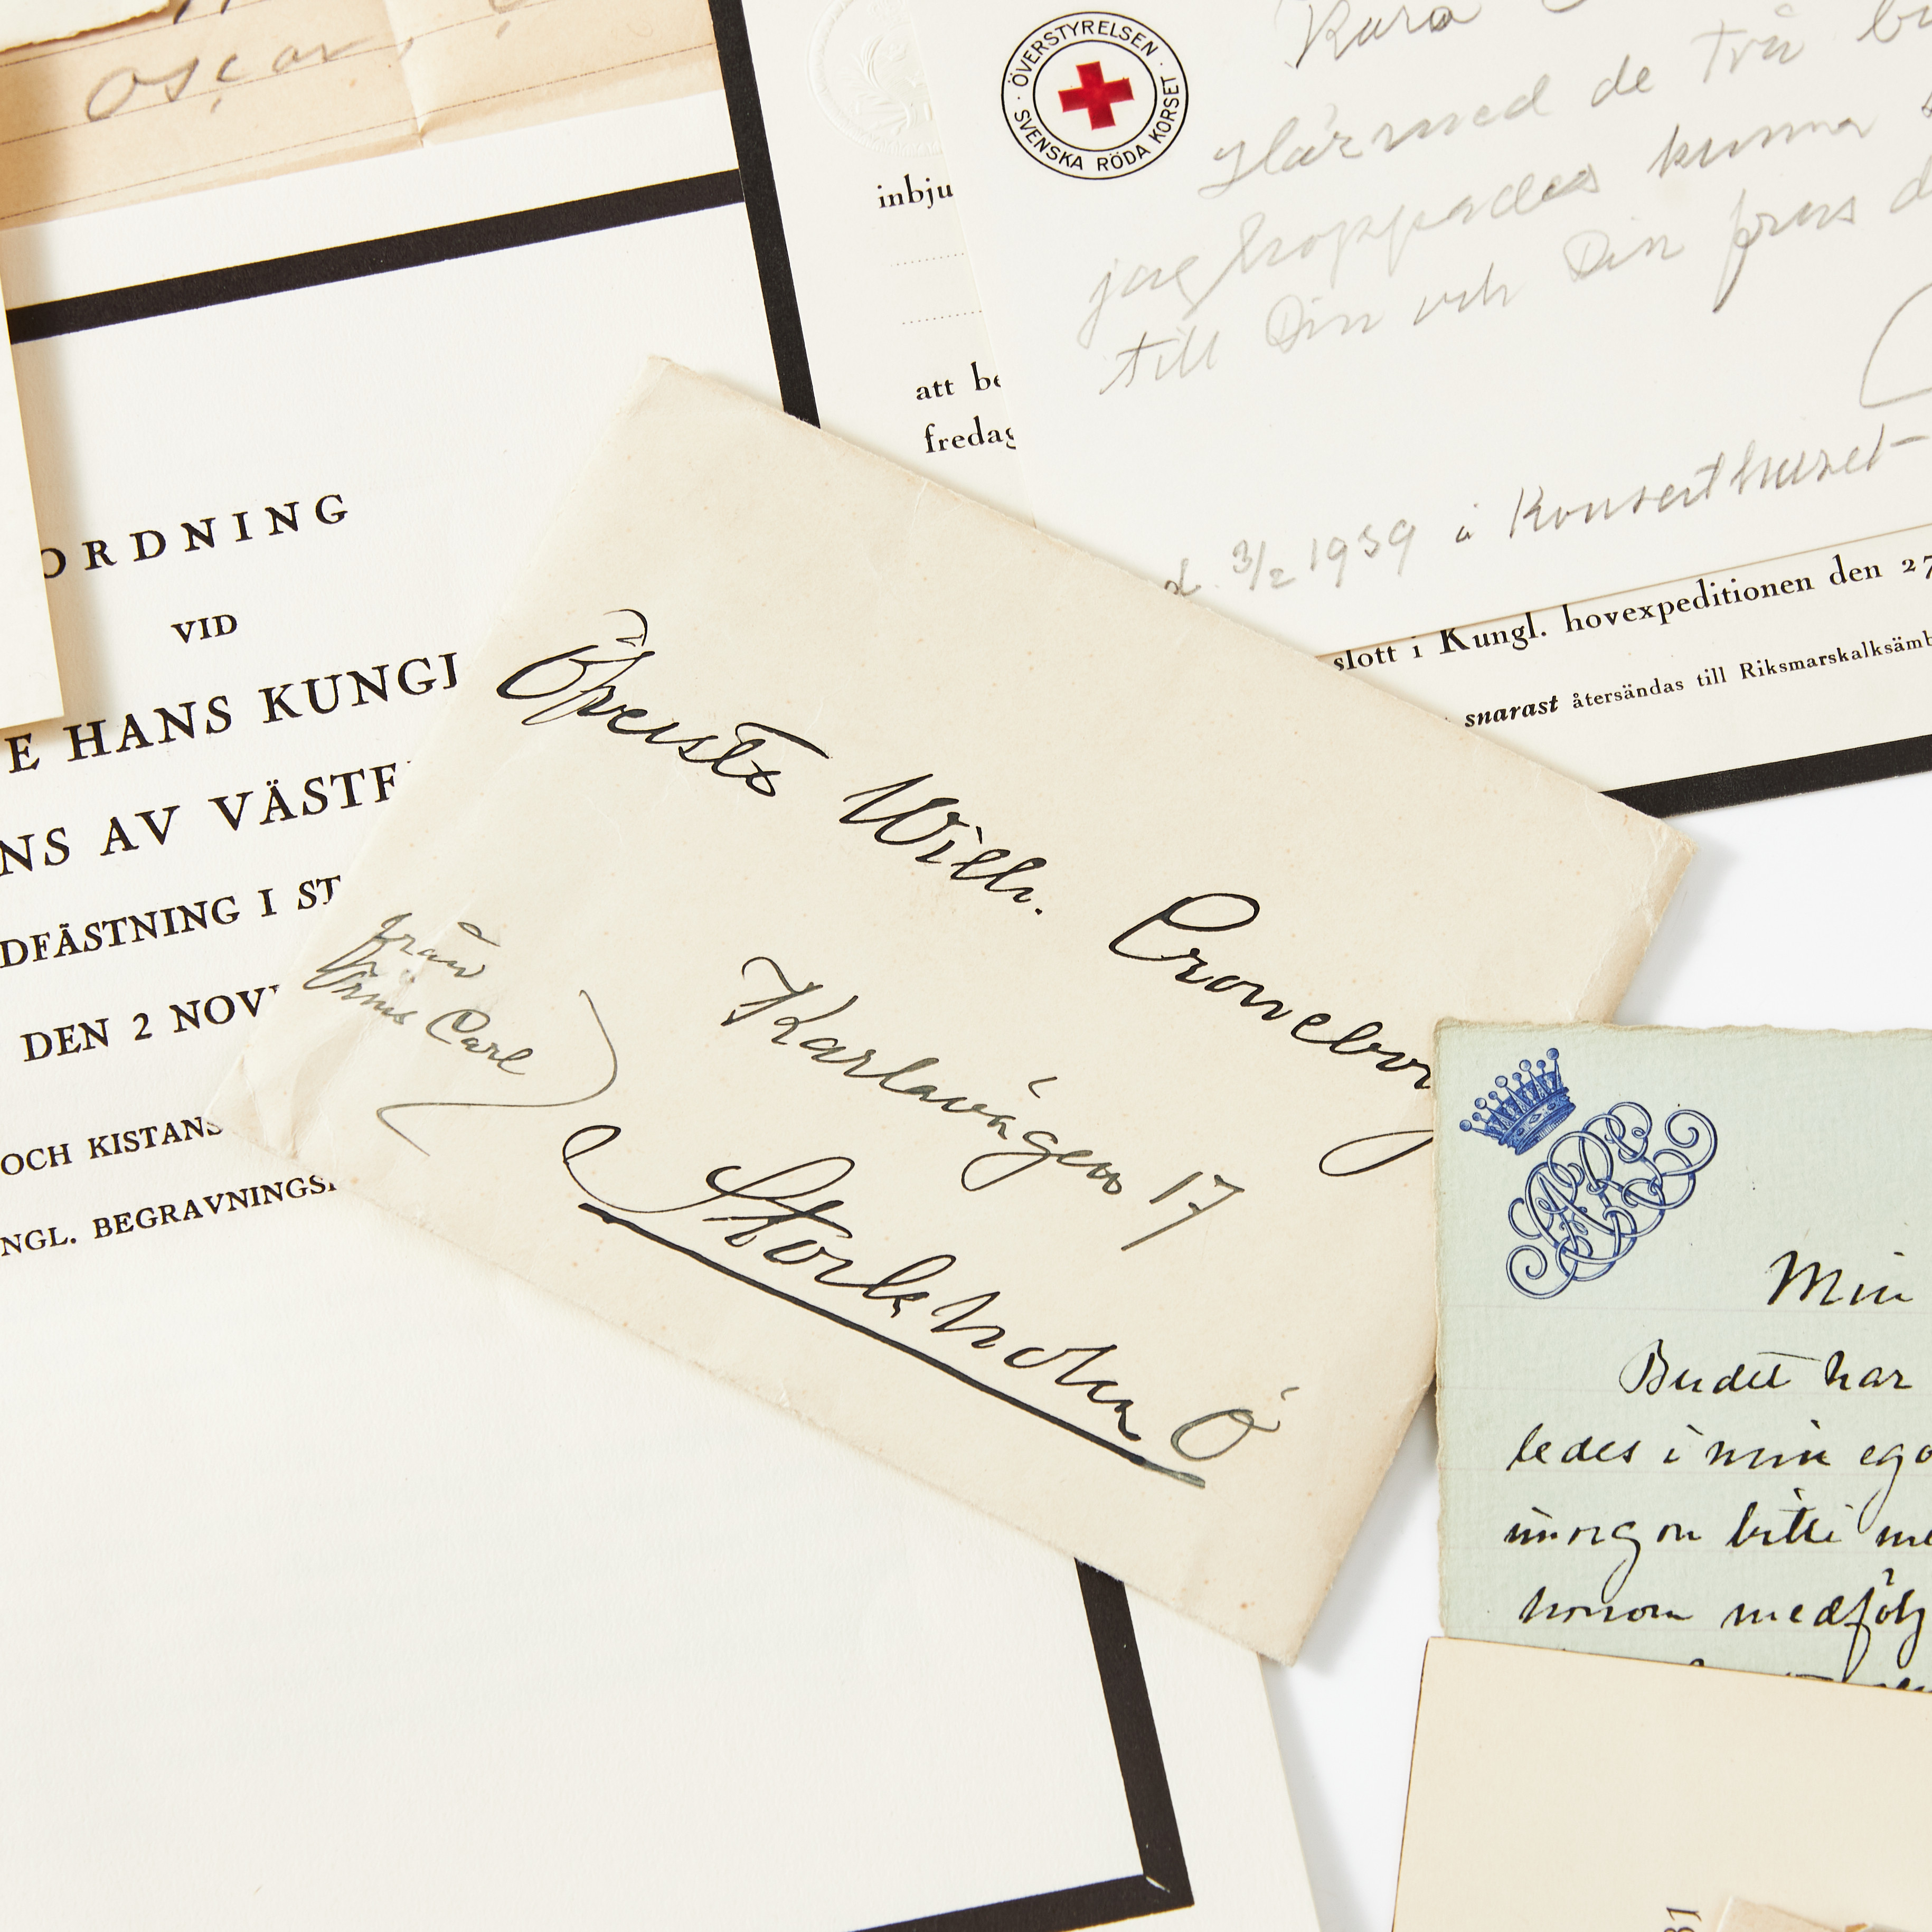 Oscar,
ORDNING
VID
E HANS KUNGL
NS AV VÄSTE
DFÄSTNING I ST
DEN 2 NOV
OCH KISTANS
NGL. BEGRAVNINGS
inbju
att be
fredag
ÖVERSTYRELSEN · SVENSKA RÖDA KORSET ·
Kära
Härmed de två bi
jag hoppades kunna
till Din och Din frus d
d. 3/2 1939 i Konserthuset
slott i Kungl. hovexpeditionen den 27
snarast återsändas till Riksmarskalksämb
Öfverste Wilh. Cronebor
Karlavägen 17
Stockholm Ö
från
Prins Carl
Min
Budet har
ledes i min ego
imorgon bitti me
honom medfölj